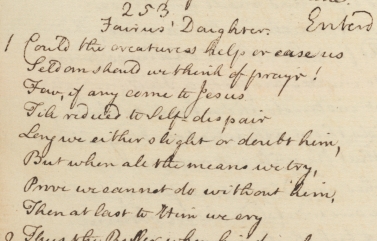 253
Jairus' Daughter. Enterd
1 Could the creatures help or ease us
Seldom should we think of prayr!
Few, if any come to Jesus
Till reduced to Self-despair
Long we either slight or doubt him,
But when all the means we try,
Prove we cannot do without him,
Then at last to Him we cry
2 Thus the Ruler when his